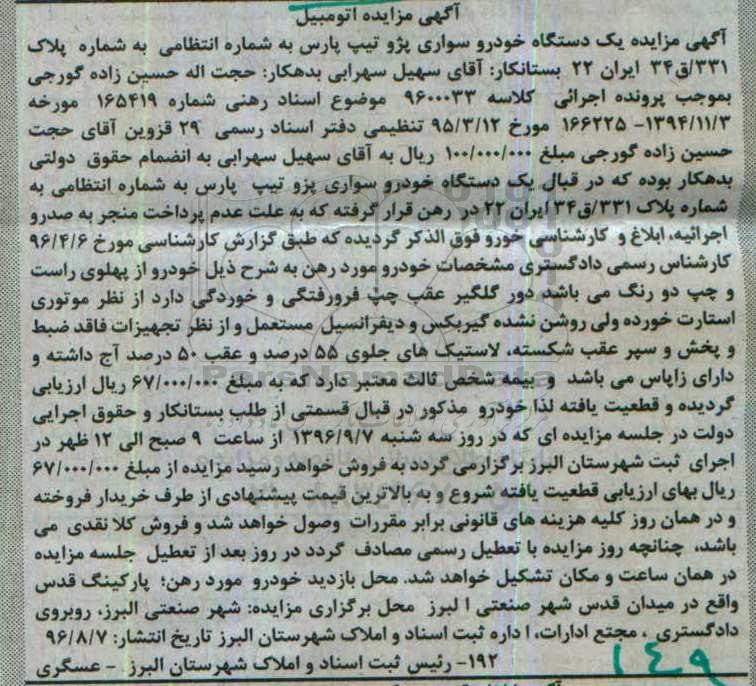 آگهی مزایده اتومبیل
آگهی مزایده یک دستگاه خودرو سواری پژو تیپ پارس به شماره انتظامی به شماره پلاک
۳۳۱/ق۳۴ ایران ۲۲ بستانکار: آقای سهیل سهرابی بدهکار: حجت اله حسین زاده گورجی
بموجب پرونده اجرائی کلاسه ۹۶۰۰۰۳۳ موضوع اسناد رهنی شماره ۱۶۵۴۱۹ مورخه
۱۳۹۴/۱۱/۳- ۱۶۶۲۲۵ مورخ ۹۵/۳/۱۲ تنظیمی دفتر اسناد رسمی ۲۹ قزوین آقای حجت
حسین زاده گورجی مبلغ ۱۰۰/۰۰۰/۰۰۰ ریال به آقای سهیل سهرابی به انضمام حقوق دولتی
بدهکار بوده که در قبال یک دستگاه خودرو سواری پژو تیپ پارس به شماره انتظامی به
شماره پلاک ۳۳۱/ق۳۴ ایران ۲۲ در رهن قرار گرفته که به علت عدم پرداخت منجر به صدرو
اجرائیه، ابلاغ و کارشناسی خورو فوق الذکر گردیده که طبق گزارش کارشناسی مورخ ۹۶/۴/۶
کارشناس رسمی دادگستری مشخصات خودرو مورد رهن به شرح ذیل خودرو از پهلوی راست
و چپ دو رنگ می باشد دور گلگیر عقب چپ فرورفتگی و خوردگی دارد از نظر موتوری
استارت خورده ولی روشن نشده گیربکس و دیفرانسیل مستعمل و از نظر تجهیزات فاقد ضبط
و پخش و سپر عقب شکسته، لاستیک های جلوی ۵۵ درصد و عقب ۵۰ درصد آج داشته و
دارای زاپاس می باشد و بیمه شخص ثالث معتبر دارد که به مبلغ ۶۷/۰۰۰/۰۰۰ ریال ارزیابی
گردیده و قطعیت یافته لذا خودرو مذکور در قبال قسمتی از طلب بستانکار و حقوق اجرایی
دولت در جلسه مزایده ای که در روز سه شنبه ۱۳۹۶/۹/۷ از ساعت ۹ صبح الی ۱۲ ظهر در
اجرای ثبت شهرستان البرز برگزارمی گردد به فروش خواهد رسید مزایده از مبلغ ۶۷/۰۰۰/۰۰۰
ریال بهای ارزیابی قطعیت یافته شروع و به بالاترین قیمت پیشنهادی از طرف خریدار فروخته
و در همان روز کلیه هزینه های قانونی برابر مقررات وصول خواهد شد و فروش کلا نقدی می
باشد، چنانچه روز مزایده با تعطیل رسمی مصادف گردد در روز بعد از تعطیل جلسه مزایده
در همان ساعت و مکان تشکیل خواهد شد. محل بازدید خودرو مورد رهن؛ پارکینگ قدس
واقع در میدان قدس شهر صنعتی ا لبرز محل برگزاری مزایده: شهر صنعتی البرز، روبروی
دادگستری ، مجتع ادارات، ا داره ثبت اسناد و املاک شهرستان البرز تاریخ انتشار: ۹۶/۸/۷
۱۹۲- رئیس ثبت اسناد و املاک شهرستان البرز - عسگری
۱۴۹
ParsNamadData